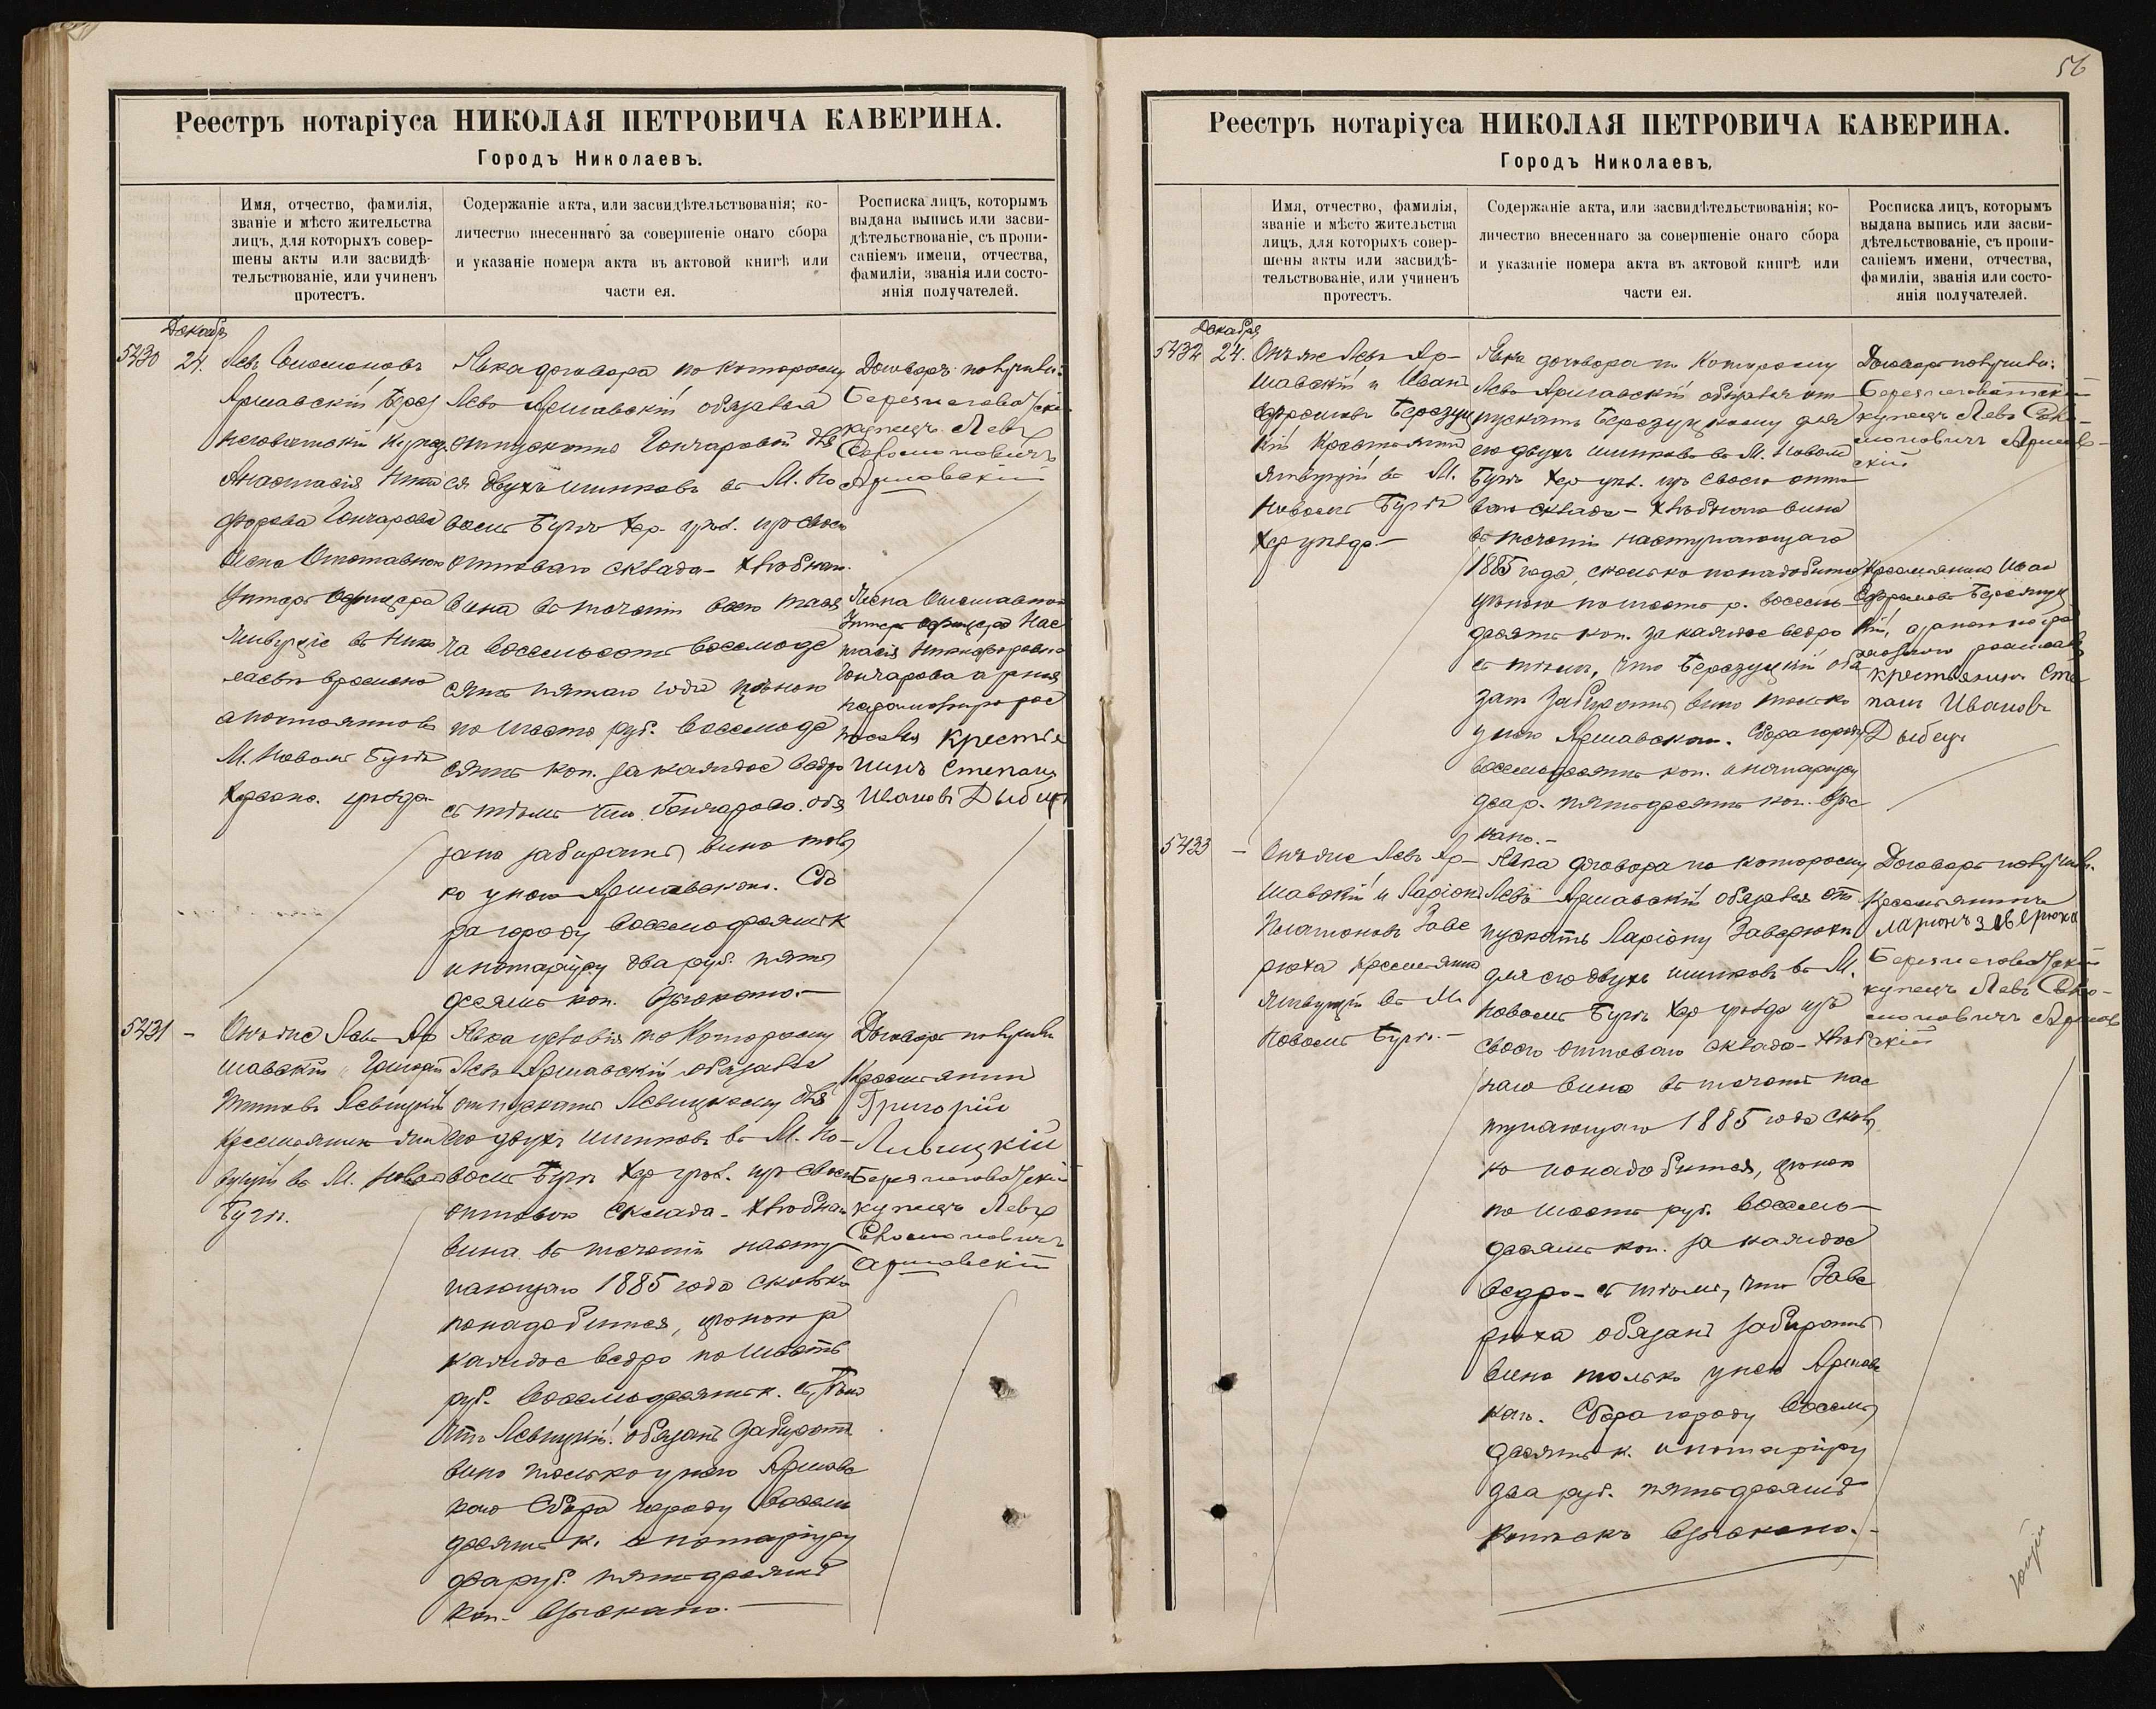 Реестръ нотаріуса НИКОЛАЯ ПЕТРОВИЧА КАВЕРИНА.
Городъ Николаевъ.
Имя, отчество, фамилія,
званіе и мѣсто жительства
лицъ, для которыхъ совер-
шены акты или засвидѣ-
тельствованіе, или учиненъ
протестъ.
Содержаніе акта, или засвидѣтельствованія; ко-
личество внесеннаго за совершеніе онаго сбора
и указаніе номера акта въ актовой книгѣ или
части ея.
Росписка лицъ, которымъ
выдана выпись или засви-
дѣтельствованіе, съ пропи-
саніемъ имени, отчества,
фамиліи, званія или состо-
янія получателей.
Декабря
5430
24.
Левъ Соломоновъ
Аршавскій Берез
неговатскій купец.
Анастасія Ники
форова Гончарова
жена Отставного
Унтеръ Офицера
живущіе въ Нико
лаевѣ временно
а постоянно въ
М. Новомъ Бугѣ
Херсонс. уѣзда
Явка договора по которому
Левъ Аршавскій обязался
отпускать Гончаровой для
ея двухъ шинковъ въ М. Но
вомъ Бугѣ Хер. уѣзд. изъ своего
оптоваго склада хлѣбнаго
вина въ теченіи всего тыся
ча восемьсотъ восемьде
сятъ пятаго года цѣною
по шесть руб. восемьде
сятъ коп. за каждое ведро
съ тѣмъ что Гончарова обя
зана забирать вино толь
ко у него Аршавскаго. Сбо
ра городу восемьдесятъ к
и нотаріусу два руб. пять
десятъ коп. взыскано.
Договоръ получили:
Березнеговатскій
купецъ Левъ
Соломоновичъ
Аршавскій
Жена Отставнаго
Унтеръ Офицера Нас
тасія Никифоровна
Гончарова а за нея
неграмотную рос
писался Крестья
нинъ Степанъ
Ивановъ Дыбец
5431 –
Онъ же Левъ Ар
шавскій и Григорій
Титовъ Левицкій
крестьянинъ жи
вущій въ М. Новомъ
Бугѣ.
Явка условія по которому
Левъ Аршавскій обязался
отпускать Левицкому для
его двухъ шинковъ въ М. Но-
вомъ Бугѣ Хер уѣзд. изъ своего
оптового склада – хлѣбнаго
вина въ теченіи насту
пающаго 1885 года сколько
понадобится, цѣною за
каждое ведро по шесть
руб. восемьдесятъ к. съ тѣмъ
что Левицкій обязанъ забирать
вино только у него Аршавс
каго Сбора городу восемь
десятъ к. и нотаріусу
два руб. пятьдесятъ
коп. взыскано.
Договоръ получили
Крестьянин
Григорій
Ливицкій
Березнеговатскій
купецъ Левъ
Соломоновичъ
Аршавскій
56
Реестръ нотаріуса НИКОЛАЯ ПЕТРОВИЧА КАВЕРИНА.
Городъ Николаевъ.
Имя, отчество, фамилія,
званіе и мѣсто жительства
лицъ, для которыхъ совер-
шены акты или засвидѣ-
тельствованіе, или учиненъ
протестъ.
Содержаніе акта, или засвидѣтельствованія; ко-
личество внесеннаго за совершеніе онаго сбора
и указаніе номера акта въ актовой книгѣ или
части ея.
Росписка лицъ, которымъ
выдана выпись или засви-
дѣтельствованіе, съ пропи-
саніемъ имени, отчества,
фамиліи, званія или состо-
янія получателей.
Декабря
5432
24.
Онъ же Левъ Ар-
шавскій и Иванъ
Ефремовъ Березуц
кій Крестьянин
живущій въ М.
Новомъ Бугѣ
Хер уѣзда.
Явка договора по Которому
Левъ Аршавскій обязался от
пускать Березуцкому для
его двухъ шинковъ въ М. Новом
Бугѣ Хер уѣз. изъ своего опто
ваго склада – хлѣбнаго вина
въ теченіи наступающаго
1885 года, сколько понадобится
цѣною по шесть р. восемь
десятъ коп. за каждое ведро
съ тѣмъ, что Березуцкій обя
занъ забирать вино только
у него Аршавскаго. Сбора городу
восемьдесятъ коп. и нотаріусу
два р. пятьдесятъ коп. взыс
кано.–
Договоръ получили:
Березнеговатскій
купецъ Левъ Соло-
моновичъ Аршав-
скій
Крестьянинъ Иван
Ефремовъ Березуц
кій, а за него негра
мотного росписался
крестьянинъ Сте
панъ Ивановъ
Дыбец
5433 –
Онъ же Левъ Ар-
шавскій и Ларіонъ
Платоновъ Заве
рюха крестьянинъ
живущій въ М.
Новомъ Бугѣ.–
Явка договора по которому
Левъ Аршавскій обязался от
пускать Ларіону Заверюхѣ
для его двухъ шинковъ въ М.
Новомъ Бугѣ Хер уѣзда изъ
своего оптоваго склада – хлѣб
наго вина въ теченіи нас
тупающаго 1885 года сколь
ко понадобится, цѣною
по шесть руб. восемь-
десятъ коп. за каждое
ведро – съ тѣмъ, что Заве
рюха обязанъ забирать
вино только у него Аршавс
каго. Сбора городу восемь
десятъ к. и нотаріусу
два руб. пятьдесятъ
копѣекъ взыскано.–
Договоръ получили.
Крестьянинъ
Ларионъ Заверюха
Березнеговатскій
купецъ Левъ Соло-
моновичъ Аршав
скій